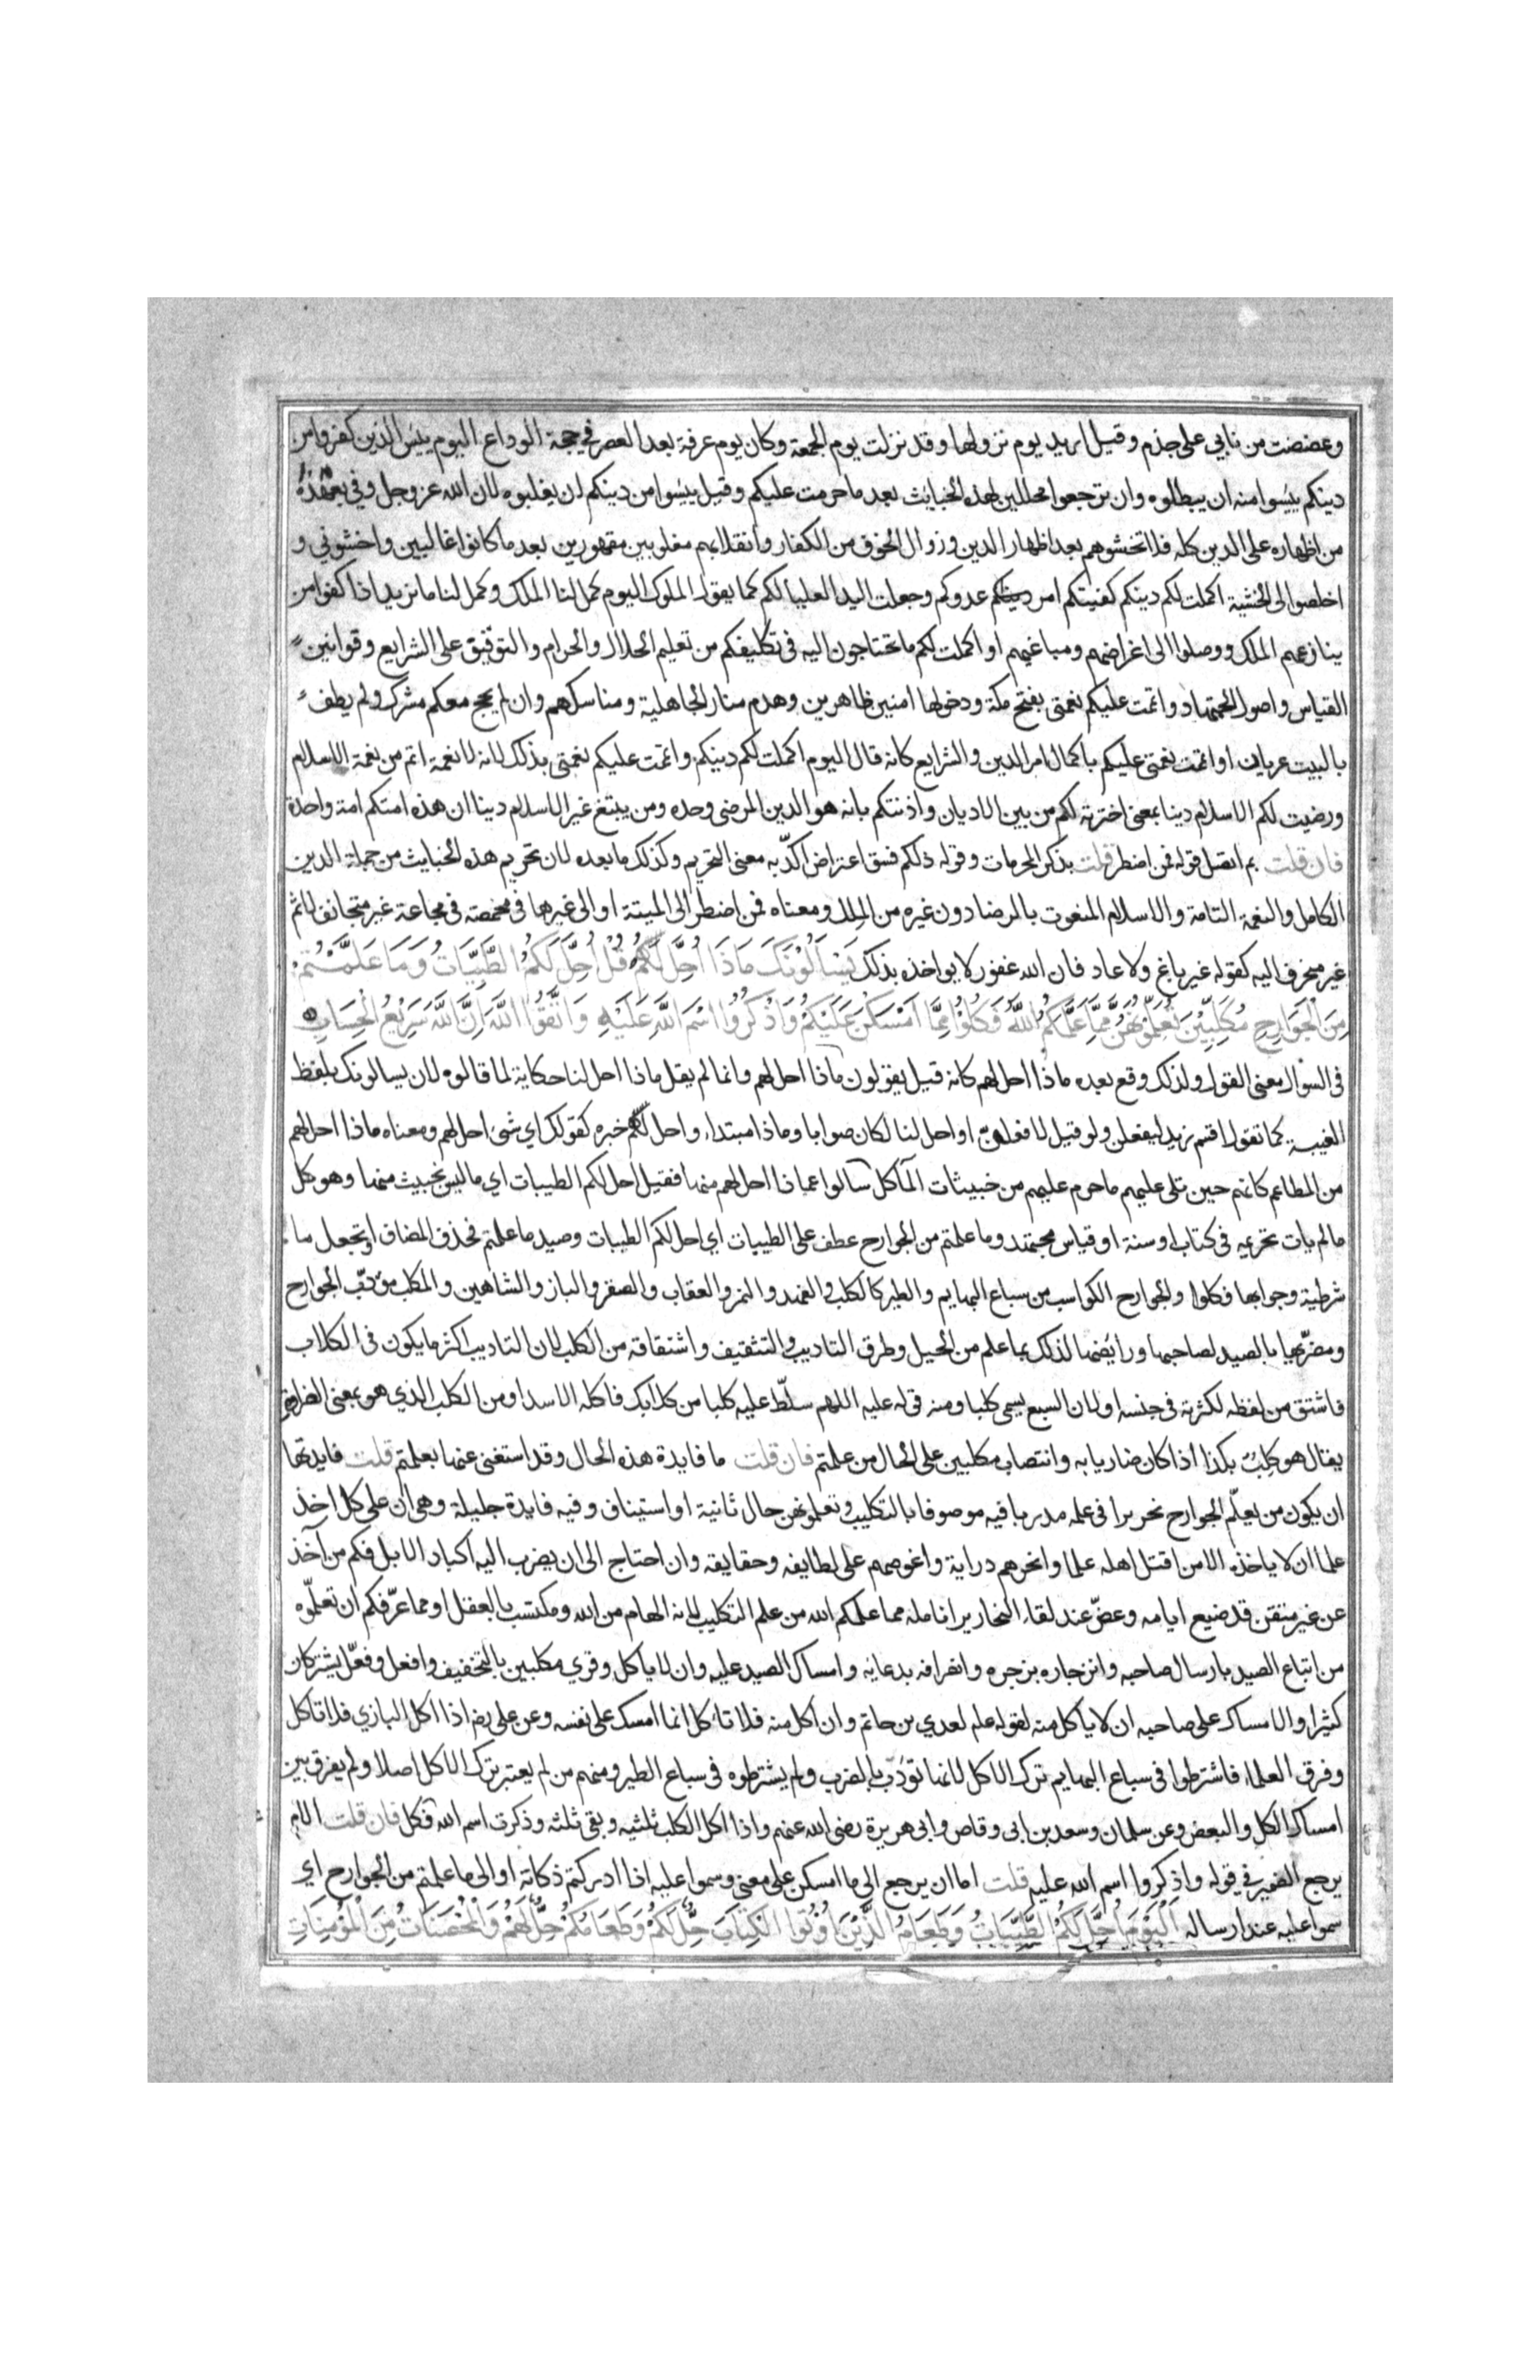 وعضضت من نابي على جذم وقيل اريد يوم نزولها وقد نزلت يوم الجمعة وكان يوم عرفة بعد العصر في حجة الوداع اليوم يئس الذين كفروا من
دينكم يئسوا منه ان يبطلوه وان ترجعوا محللين لهذه الخبايث بعد ما حرمت عليكم وقيل يئسوا من دينكم ان يغلبوه لان الله عز وجل وفي بعهده
من اظهاره على الدين كله فلا تخشوهم بعد اظهار الدين وزوال الخوف من الكفار وانقلابهم مغلوبين مقهورين بعد ما كانوا غالبين واخشوني و
اخلصوا لى الخشية اكملت لكم دينكم كفيتكم امر عدوكم وجعلت اليد العليا لكم كما يقول الملوك اليوم كمل لنا الملك وكمل لنا ما نريد اذا كفوا من
ينازعهم الملك ووصلوا الى اغراضهم ومباغيهم او اكملت لكم ما تحتاجون اليه فى تكليفكم من تعليم الحلال والحرام والتوقيق على الشرايع وقوانين
القياس واصول الاجتهاد واتممت عليكم نعمتى بفتح مكة ودخولها امنين ظاهرين وهدم منار الجاهلية ومناسكهم وان لم يحج معكم مشرك ولم يطف
بالبيت عريان او اتممت نعمتى عليكم باكمال امر الدين والشرايع كانه قال اليوم اكملت لكم دينكم واتممت عليكم نعمتى بذلك لانه لا نعمة اتم من نعمة الاسلام
ورضيت لكم الاسلام دينا بمعنى اخترته لكم من بين الاديان واذنتكم بانه هو الدين المرضى وحده ومن يبتغ غير الاسلام دينا ان هذه امتكم امة واحدة
فان قلت بم اتصل قوله فمن اضطر قلت بذكر المحرمات وقوله ذلكم فسق اعتراض اكد به معنى التحريم وكذلك ما بعده لان تحريم هذه الخبايث من جملة الدين
الكامل والنعمة التامة والاسلام المنعوت بالرضا دون غيره من الملل ومعناه فمن اضطر الى الميتة او الى غيرها فى مخمصة فى مجاعة غير متجانف لاثم
غير منحرف اليه كقوله غير باغ ولا عاد فان الله غفور لا يواخذه بذلك يَسْأَلُونَكَ مَاذَا أُحِلَّ لَكُمْ قُلْ أُحِلَّ لَكُمُ الطَّيِّبَاتُ وَمَا عَلَّمْتُمْ
مِنَ الْجَوَارِحِ مُكَلِّبِيْنَ تُعَلِّمُونَهُنَّ مِمَّا عَلَّمَكُمُ اللَّهُ فَكُلُوْا مِمَّا اَمْسَكْنَ عَلَيْكُمْ وَاذْكُرُوا اسْمَ اللَّهِ عَلَيْهِ وَاتَّقُوا اللَّهَ اِنَّ اللَّهَ سَرِيْعُ الْحِسَابِ
فى السوال معنى القول ولذلك وقع بعده ماذا احل لهم كانه قيل يقولون ماذا احل لهم وانما لم يقل ماذا احل لنا حكاية لما قالوه لان يسالونك بلفظ
الغيبة كما تقول اقسم زيد ليفعلن ولو قيل لافعلن او احل لنا لكان صوابا وماذا مبتداء واحل لهم خبره كقولك اي شئ احل لهم ومعناه ماذا احل لهم
من المطاعم كانهم حين تلى عليهم ما حرم عليهم من خبيثات المآكل سالوا عما ذا احل لهم منها فقيل احل لكم الطيبات اي ما ليس بخبيث منها وهو كل
ما لم يات تحريمه فى كتاب او سنة او قياس مجتهد وما علمتم من الجوارح عطف على الطيبات اي احل لكم الطيبات وصيد ما علمتم فحذف المضاف او تجعل ما
شرطية وجوابها فكلوا والجوارح الكواسب من سباع البهايم والطير كالكلب والفهد والنمر والعقاب والصقر والباز والشاهين والمكلب مودّب الجوارح
ومضرّيها بالصيد لصاحبها ورايضها لذلك بما علم من الحيل وطرق التاديب والتثقيف واشتقاقه من الكلب لان التاديب اكثر ما يكون فى الكلاب
فاشتق من لفظه لكثرته فى جنسه او لان السبع يسمى كلبا ومنه قوله عليه اللهم سلّط عليه كلبا من كلابك فاكله الاسد او من الكلب الذي هو بمعنى الضراوة
يقال هو كلِبٌ بكذا اذا كان ضاريا به وانتصاب مكلبين على الحال من علمتم فان قلت ما فايدة هذه الحال وقد استغنى عنها بعلمتم قلت فايدتها
ان يكون من يعلّم الجوارح نحريرا فى علمه مدربا فيه موصوفا بالتكليب وتعلمونهن حال ثانية او استيناف وفيه فايدة جليلة وهى ان على كل اخذ
علما ان لا ياخذه الا من اقتل اهله علما وانحرهم دراية واغوصهم على لطايفه وحقايقه وان احتاج الى ان يضرب اليه اكباد الابل فكم من آخذ
عن غير متقن قد ضيع ايامه وعضّ عند لقاء النحارير انامله مما علمكم الله من علم التكليب لانه الهام من الله ومكتسب بالعقل او مما عرّفكم ان تعلّموه
من اتباع الصيد بارسال صاحبه وانزجاره بزجره وانصرافه بدعايه وامساك الصيد عليه وان لا ياكل وقري مكلبين بالتخفيف وافعل وفعّل يشتركان
كثيرا والامساك على صاحبه ان لا ياكل منه لقوله علم لعدي بن حاتم وان اكل منه فلا تاكل انما امسك على نفسه وعن على رضى اذا اكل البازي فلا تاكل
وفرق العلماء فاشترطوا فى سباع البهايم ترك الاكل لانها تودّب بالضرب ولم يشترطوه فى سباع الطير ومنهم من لم يعتبر ترك الاكل اصلا ولم يفرق بين
امساك الكل والبعض وعن سلمان وسعد بن ابى وقاص وابى هريرة رضى الله عنهم واذا اكل الكلب ثلثيه وبقى ثلثه وذكرت اسم الله فكل فان قلت الام
يرجع الضمير في قوله واذكروا اسم الله عليه قلت اما ان يرجع الى ما امسكن على معنى وسموا عليه اذا ادركتم ذكاته او الى ما علمتم من الجوارح اي
سموا عليه عند ارساله اَلْيَوْمَ اُحِلَّ لَكُمُ الطَّيِّبَاتُ وَطَعَامُ الَّذِيْنَ اُوْتُوا الْكِتَابَ حِلٌّ لَكُمْ وَطَعَامُكُمْ حِلٌّ لَهُمْ وَالْمُحْصَنَاتُ مِنَ الْمُؤْمِنَاتِ